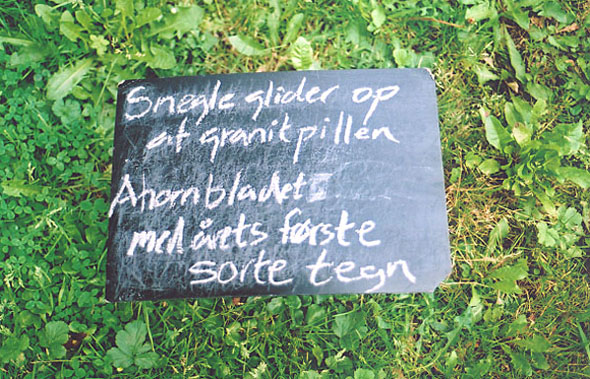 Snegle glider op
af granitpillen
Ahornbladet
med årets første
sorte tegn